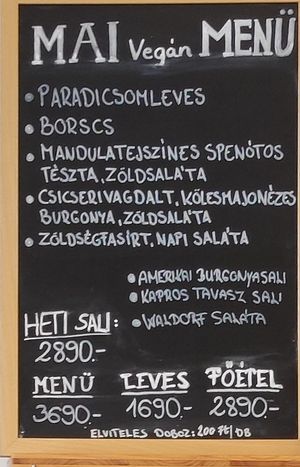 MAI Vegán MENÜ
• PARADICSOMLEVES
• BORSCS
• MANDULATEJSZÍNES SPENÓTOS
TÉSZTA, ZÖLDSALÁTA
• CSICSERIVAGDALT, KÖLESMAJONÉZES
BURGONYA, ZÖLDSALÁTA
• ZÖLDSÉGFASÍRT, NAPI SALÁTA
• AMERIKAI BURGONYASALI
• KAPROS TAVASZ SALI
• WALDORF SALÁTA
HETI SALI:
2890.-
MENÜ LEVES FŐÉTEL
3690.- 1690.- 2890.-
ELVITELES DOBOZ: 200 Ft/DB